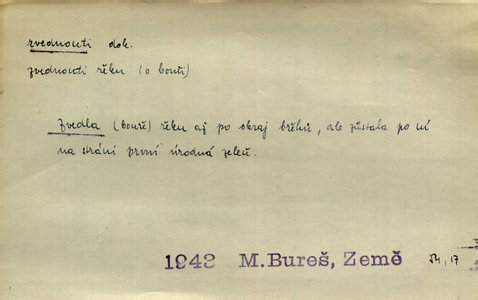 zvednouti dok.
zvednouti řěku (o bouři)
Zvedla (bouře) řěku až po okraj břehů, ale zůstala po ní
na stráni první úrodná zeleň.
1943 M.Bureš, Země 54, 17